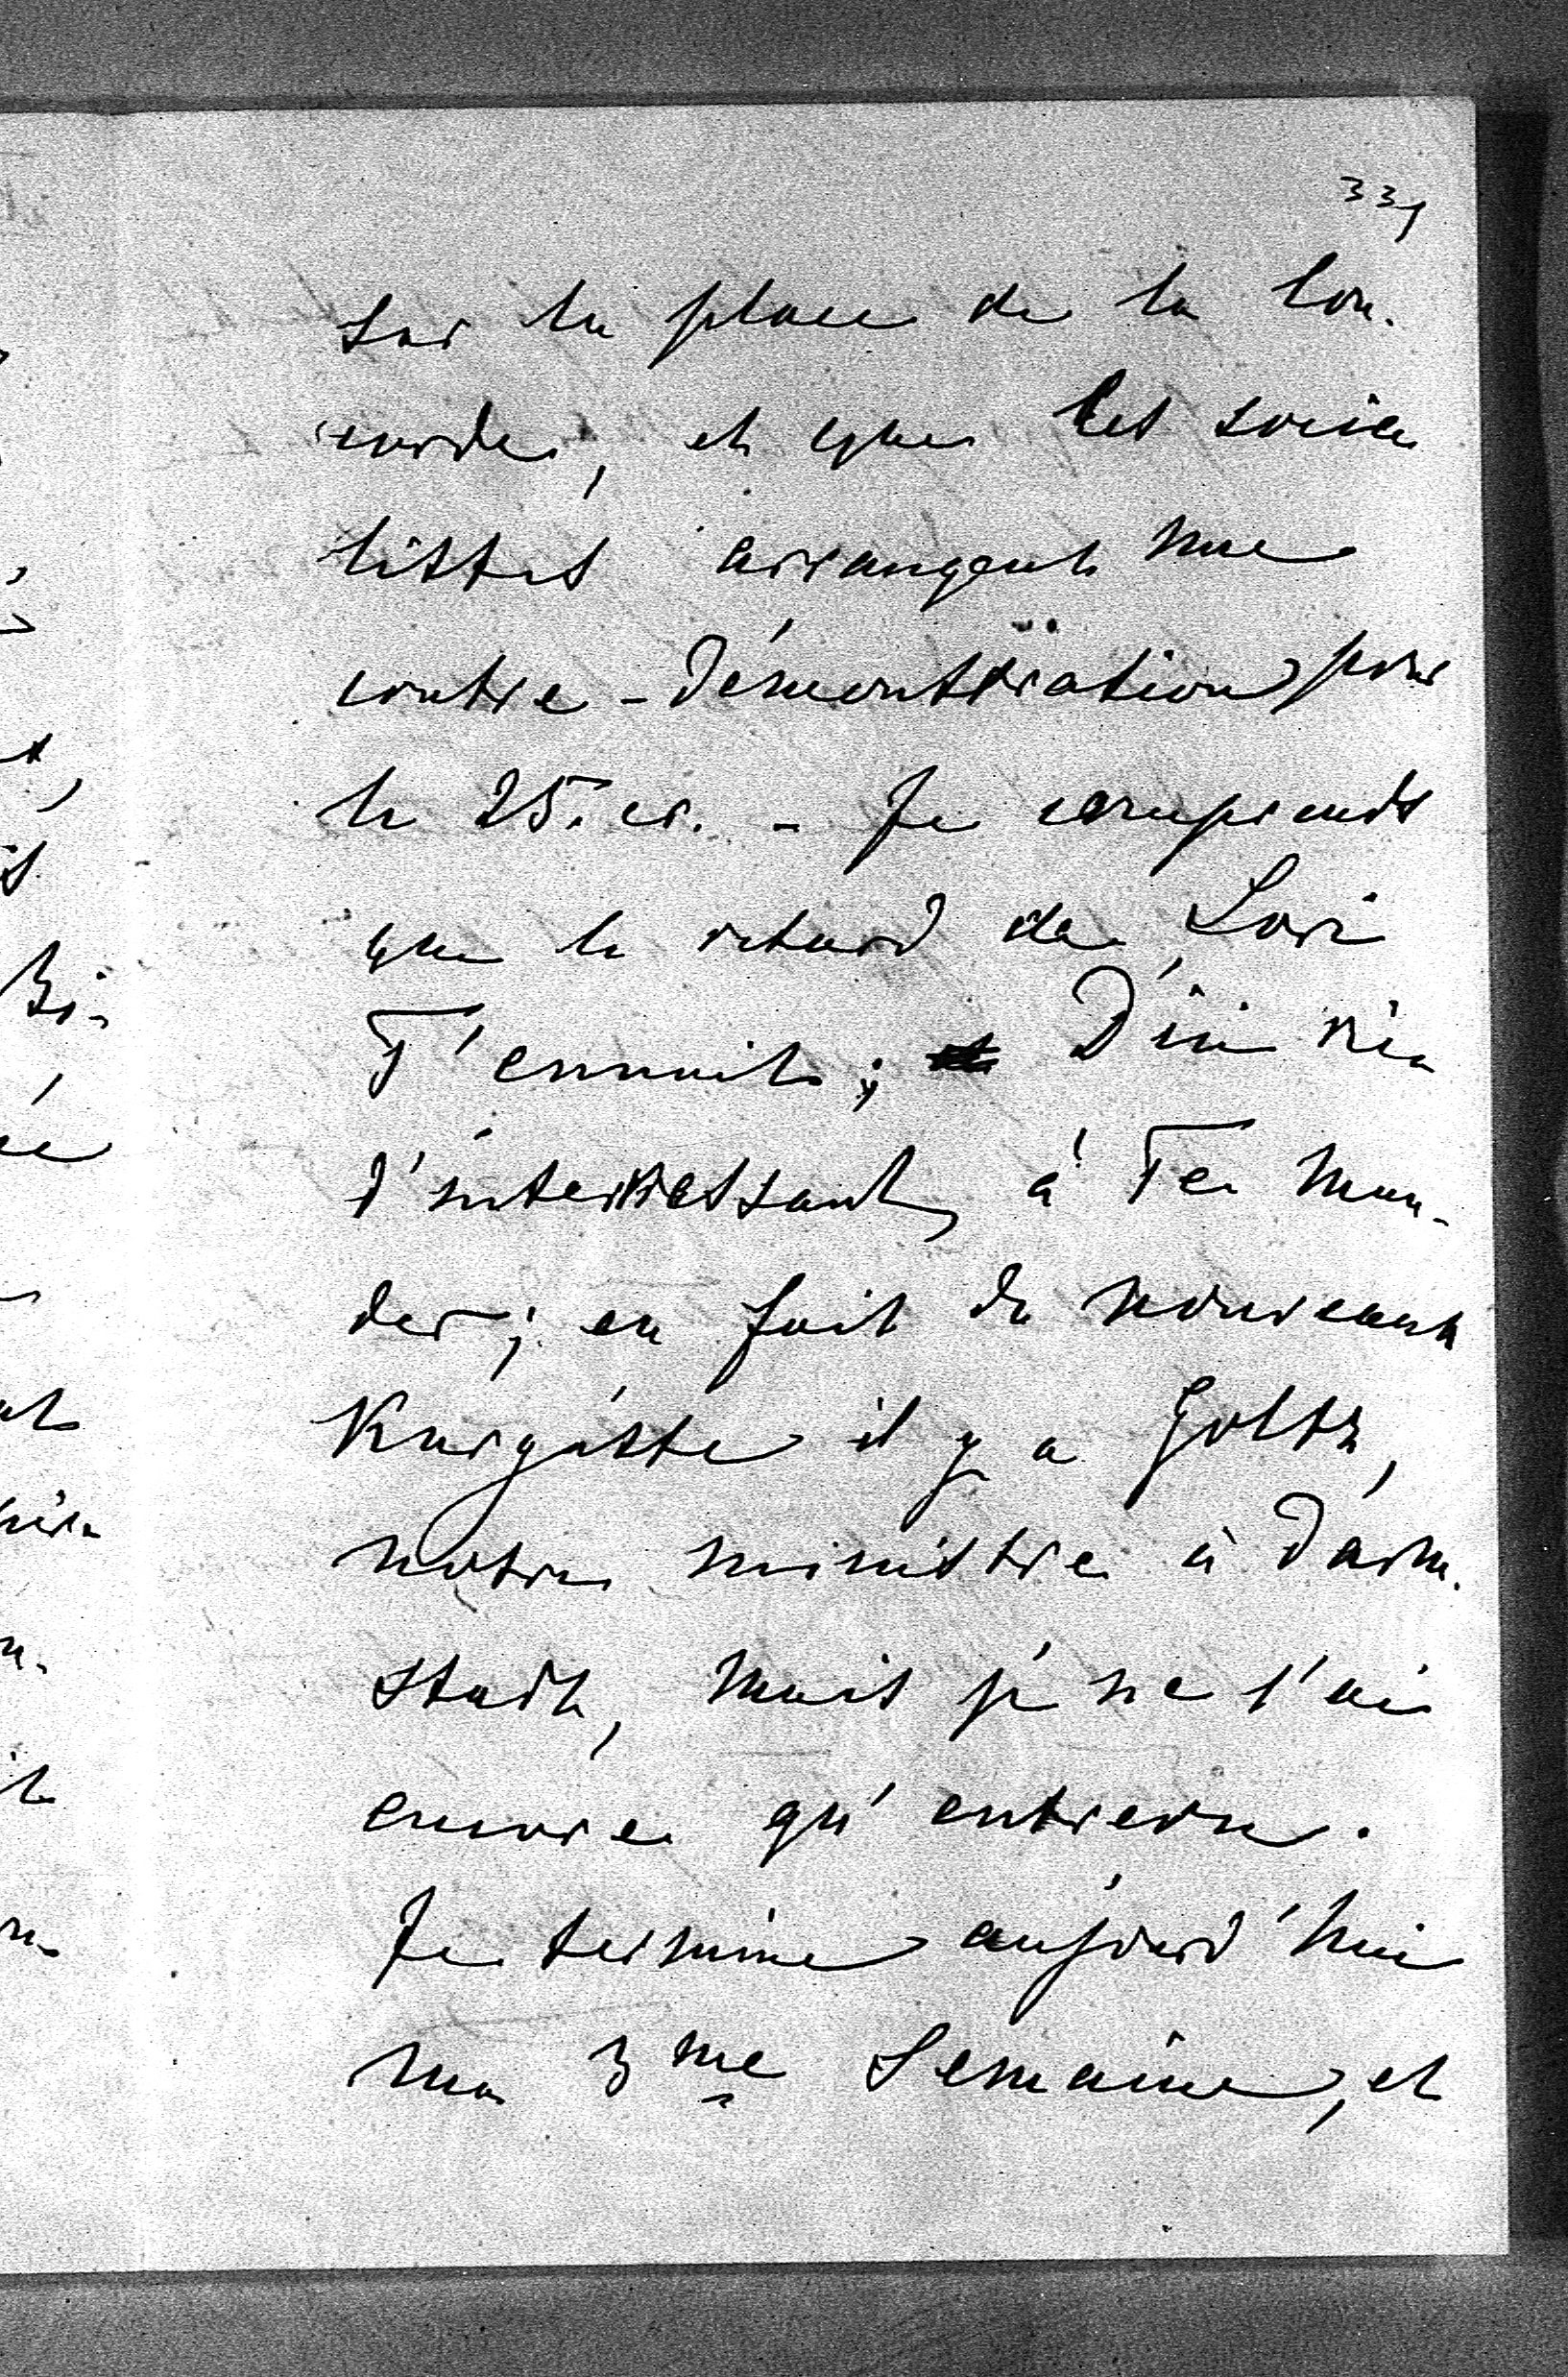 331
sur la place de la Con-
corde, et que les socia
listes arrangent une
contre-démonstration pour
le 25. cr. - Je comprends
que le retard de Lori
T'ennuit; D'ici rien
d'interressant à Te man-
der; en fait de nouveaux
Kurgäste il y a Goltz,
notre ministre à Darm-
stadt, mais je ne l'ai
encore qu'entrevu.
Je termine aujourd'hui
ma 3me Semaine, et